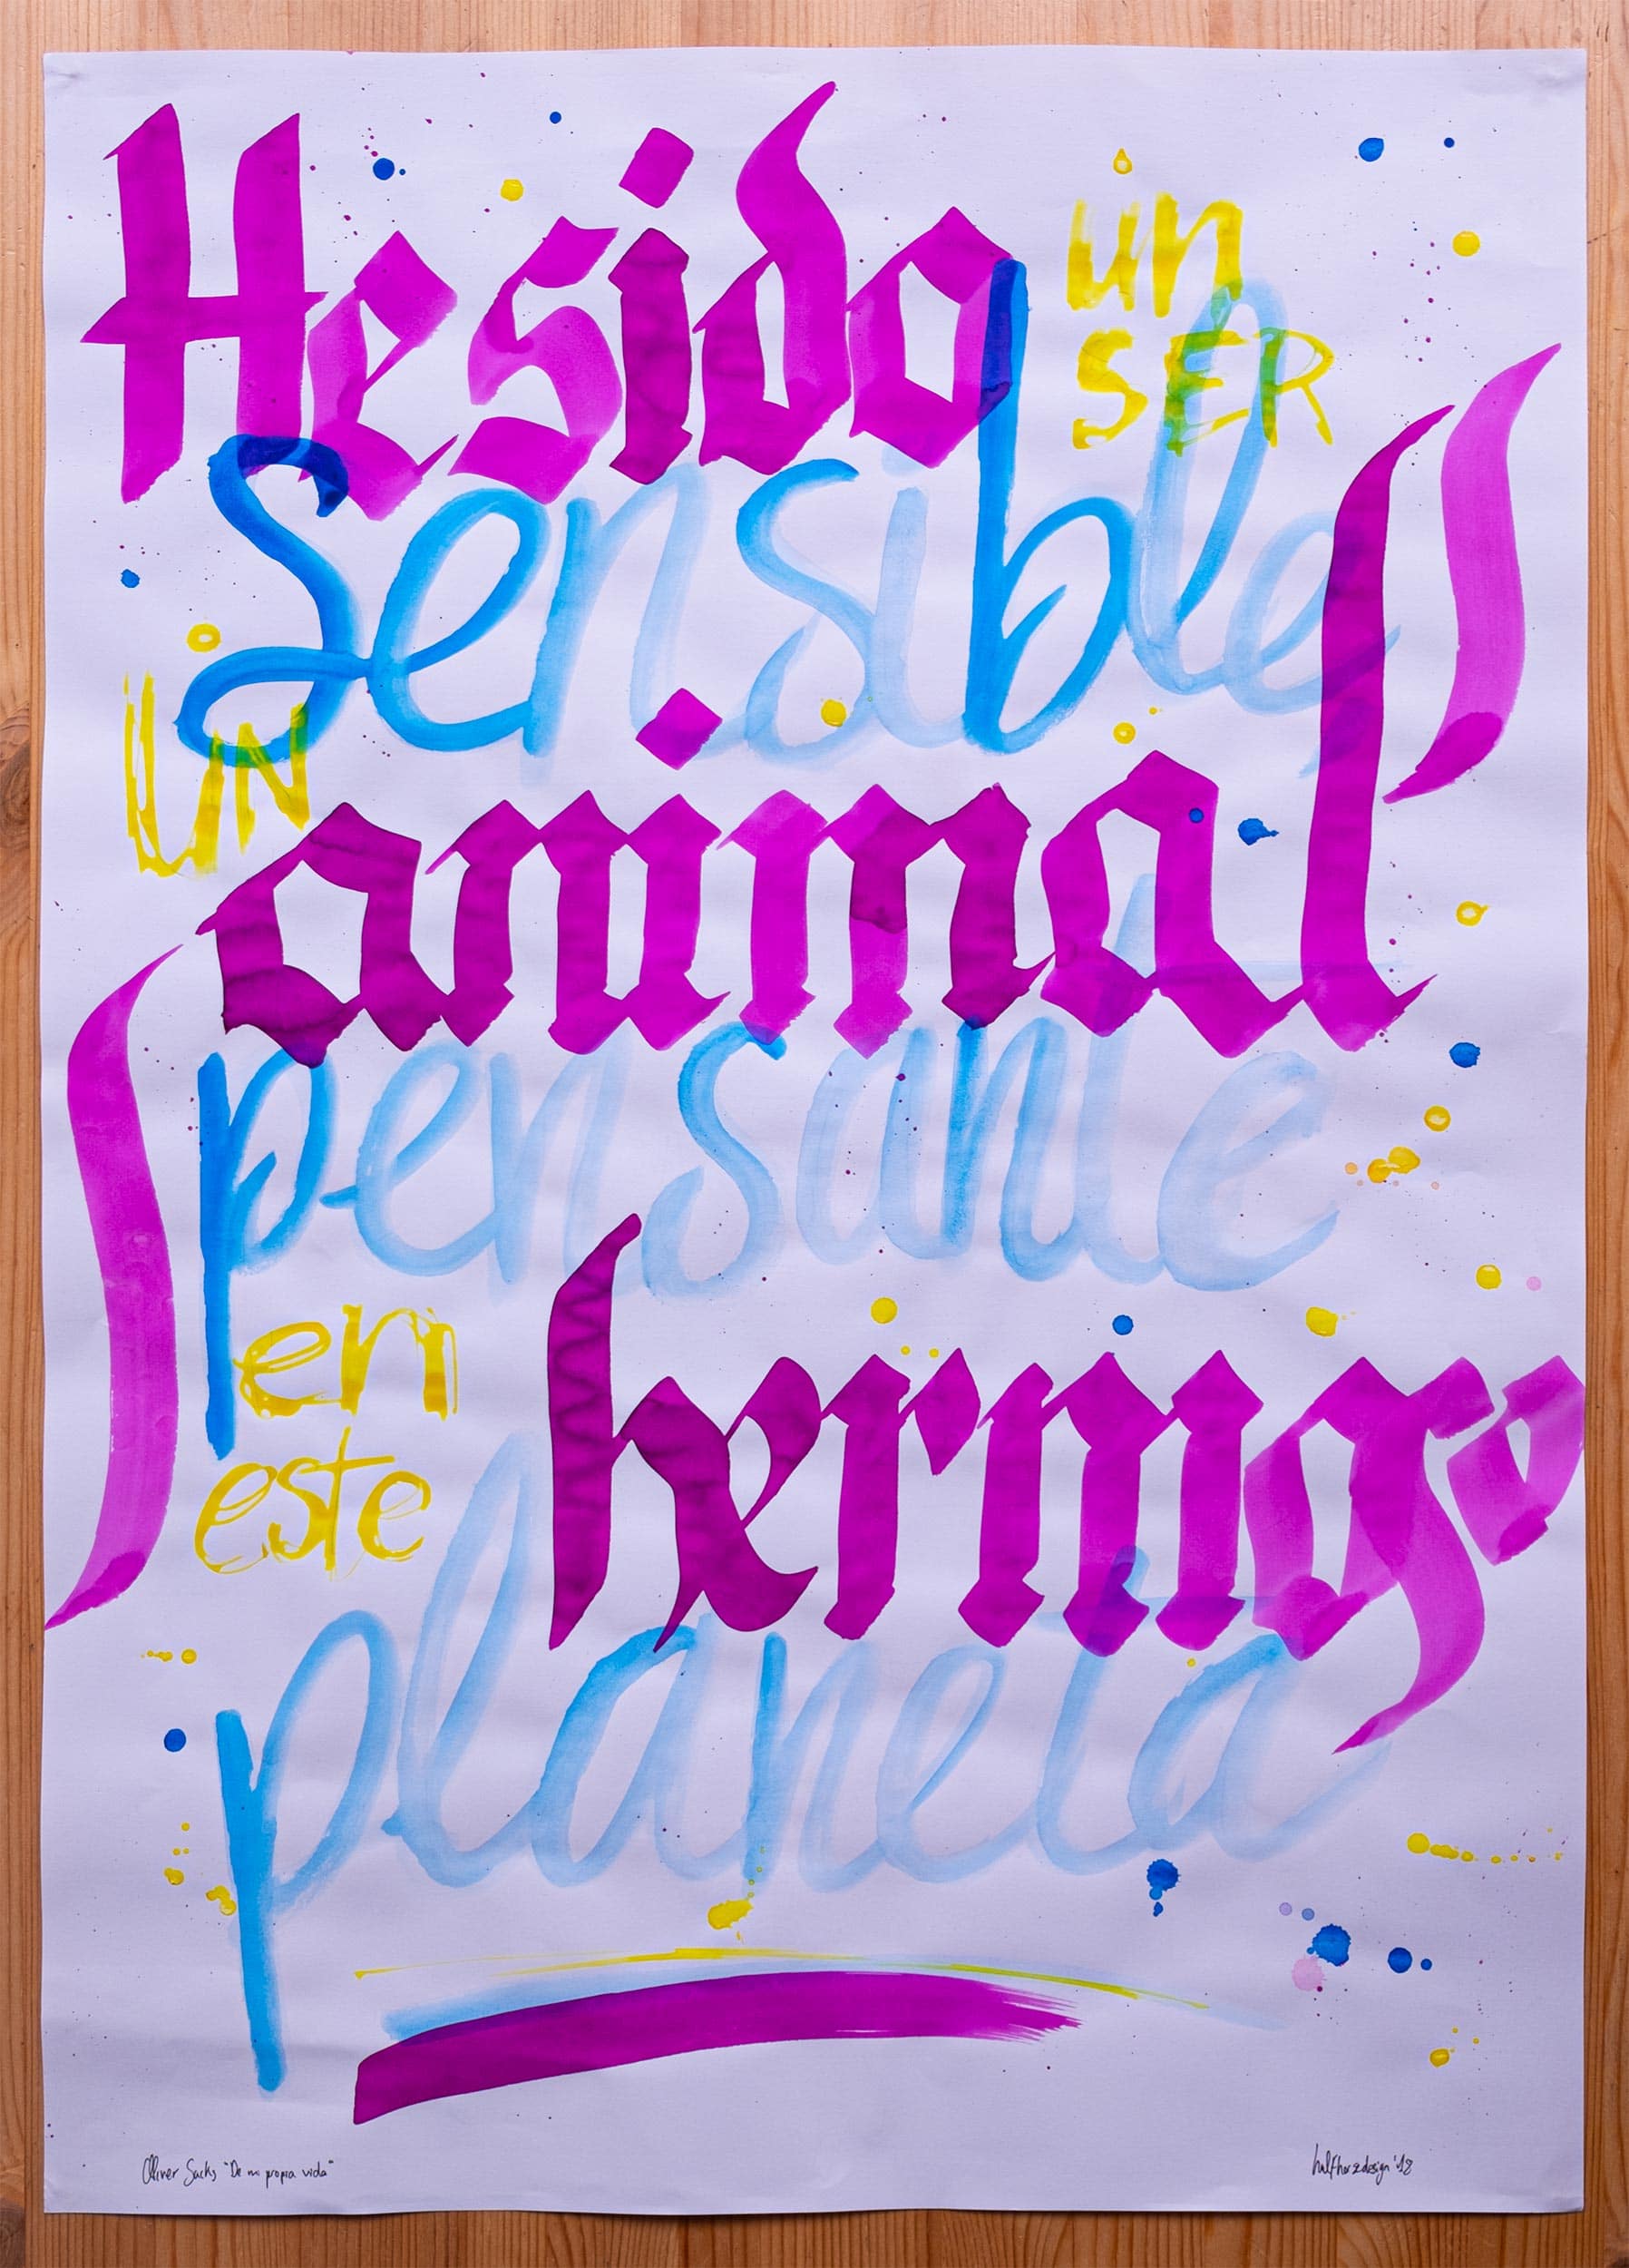 He sido un
SER
Sensible
UN
animal
pensante
en
este hermoso
planeta
Oliver Sacks "De mi propia vida"
halfherzdesign '18